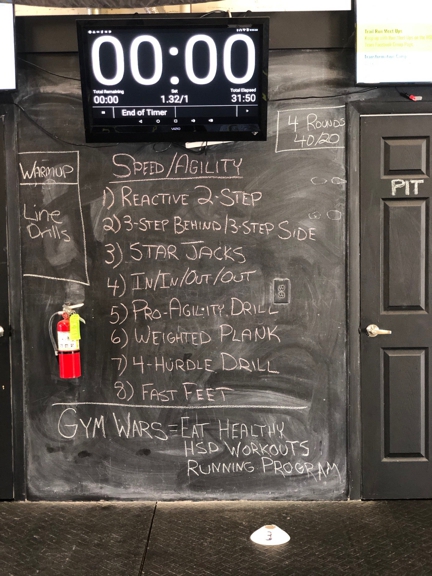 00:00
Total Remaining Set Total Elapsed
00:00 1.32/1 31:50
End of Timer
VIZIO
4 Rounds
40/20
Warmup
Line
Drills
Speed/Agility
1) Reactive 2-Step
2) 3-Step Behind/3-Step Side
3) Star Jacks
4) In/In/Out/Out
5) Pro-Agility Drill
6) Weighted Plank
7) 4-Hurdle Drill
8) Fast Feet
Gym Wars = Eat Healthy
HSD Workouts
Running Program
PIT
3